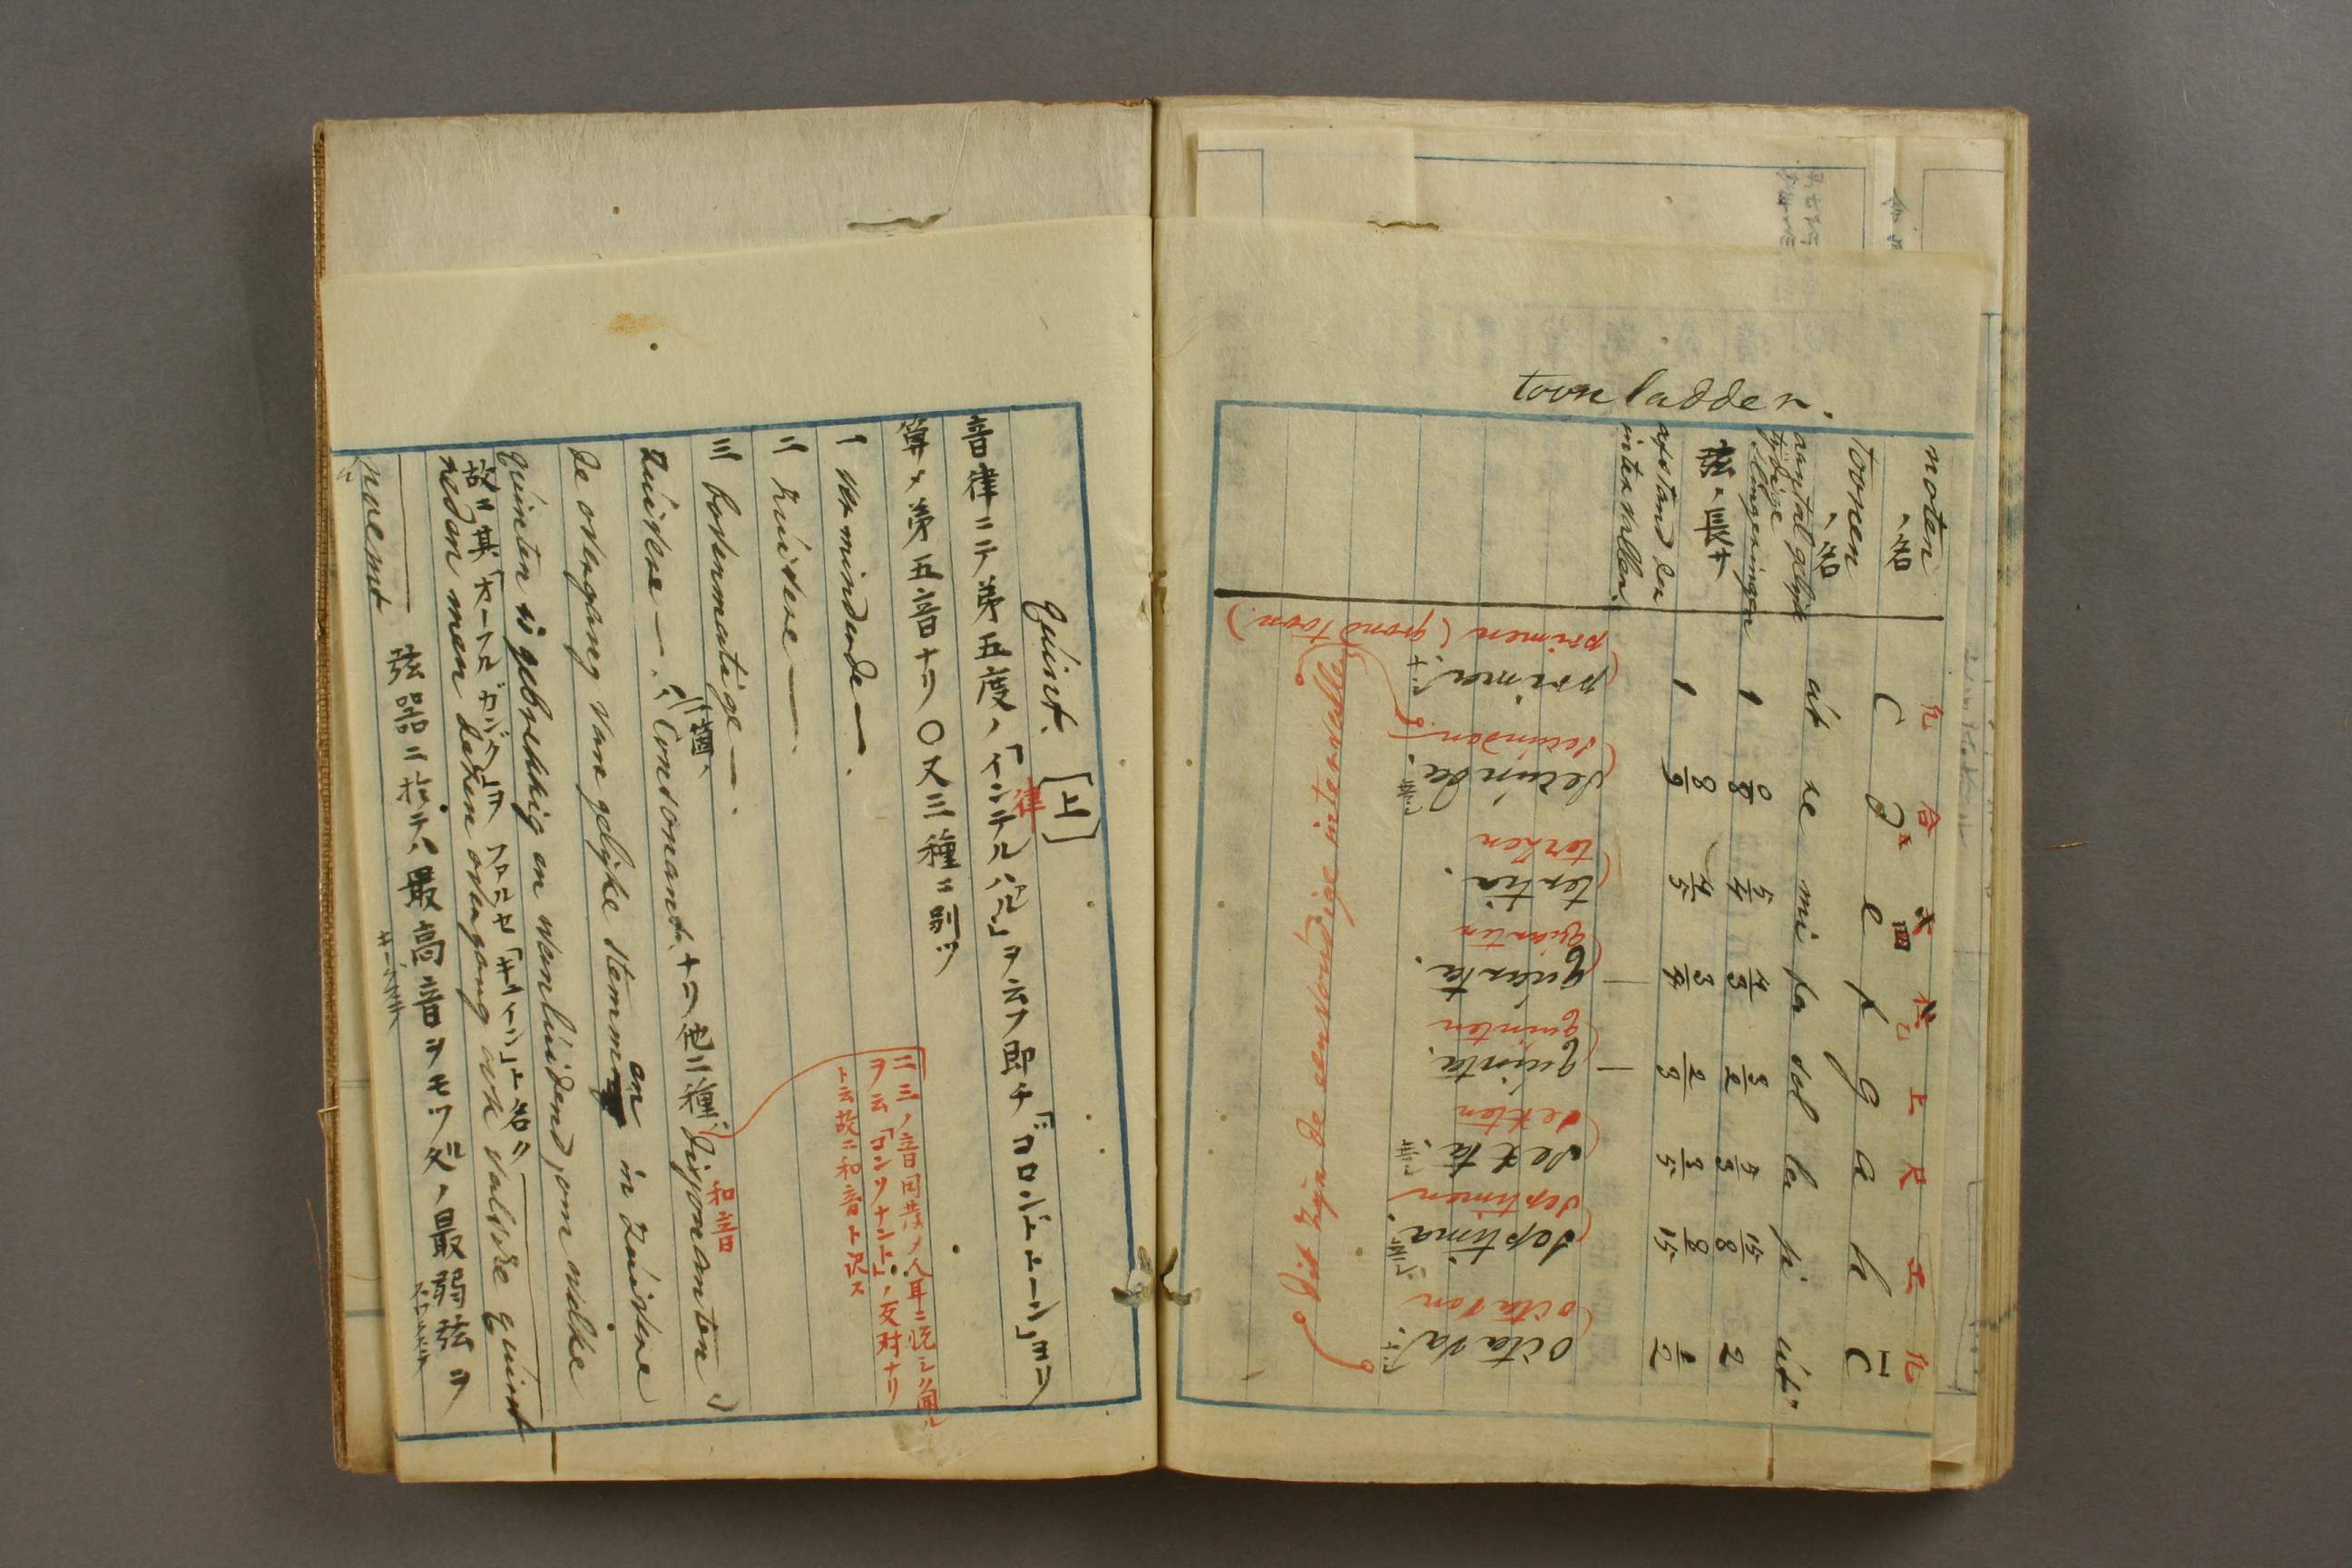 toonladder.
noten
、名
凢 合 四 乙 上 尺 工 凢
C d e f g a h C
toonen
、名
ut re mi fa sol la si ut
aantal gelijk
tijdige
slingeringen
1 9/8 5/4 4/3 3/2 5/3 15/8 2
弦、長サ
1 8/9 4/5 3/4 2/3 3/5 8/15 1/2
afstand der
intervallen.
prima. secunda. tertia. quarta. quinta. sexta. septima. octava.
primen (grond toon)
secunden
tertzen
quarten
quinten
sexten
septimen
octaven
Dit zijn de eenvoudige intervallen
Quint. [上]
音律ニテ第五度ノ「インテルハル」ヲ云フ即チ「ゴロンドトーン」ヨリ
律
算メ第五音ナリ〇又三種ニ別ツ
一 verminderde —.
二 zuivere —.
三 bovenmatige —.
二三ノ音同共ノ人耳ニ悦シク聞ル
ヲ云「コンソナント」ノ反対ナリ
ト云故ニ和音ト訳ス
zuivere —. ハ Consonant ナリ他二種ハ dissonanten
箇、
和音
de overgang van gelijke stemmen in zuivere
quinten is gebrekkig en wanluidend, om welke
故ニ其「ヲーフルガング」ヲ ファルセ「キュイント」ト名ク
reden men dezen overgang ook valsche quint
noemt
弦器ニ於テハ最高音ヲモツ処ノ最弱弦ヲ